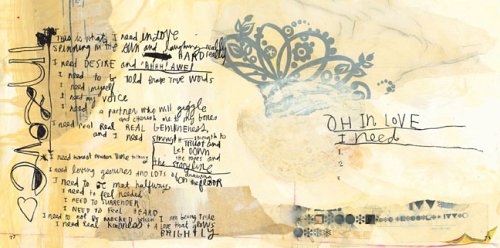 in love
This is what I need IN LOVE
spinning in the SUN and laughing really
HARD really
I need DESIRE and "AHHH! AWE!
I need to be told those true words
I need myself
I need my VOICE
I need a partner who will giggle
and cherish me to my bones
I need real Real REAL GENUINENESS,
and I need strength strength to
let DOWN
the ropes and
the storyline
I need loving gestures AND LOTS of drawing
on the FLOOR
I need to be met halfway
I need to feel needed
I need TO SURRENDER
I NEED TO feel HEARD
I need to not be mocked when I am being TRUE
I need Real Kindness + A love that glows
BRIGHTLY
OH IN LOVE
I need
1.
2.
3.